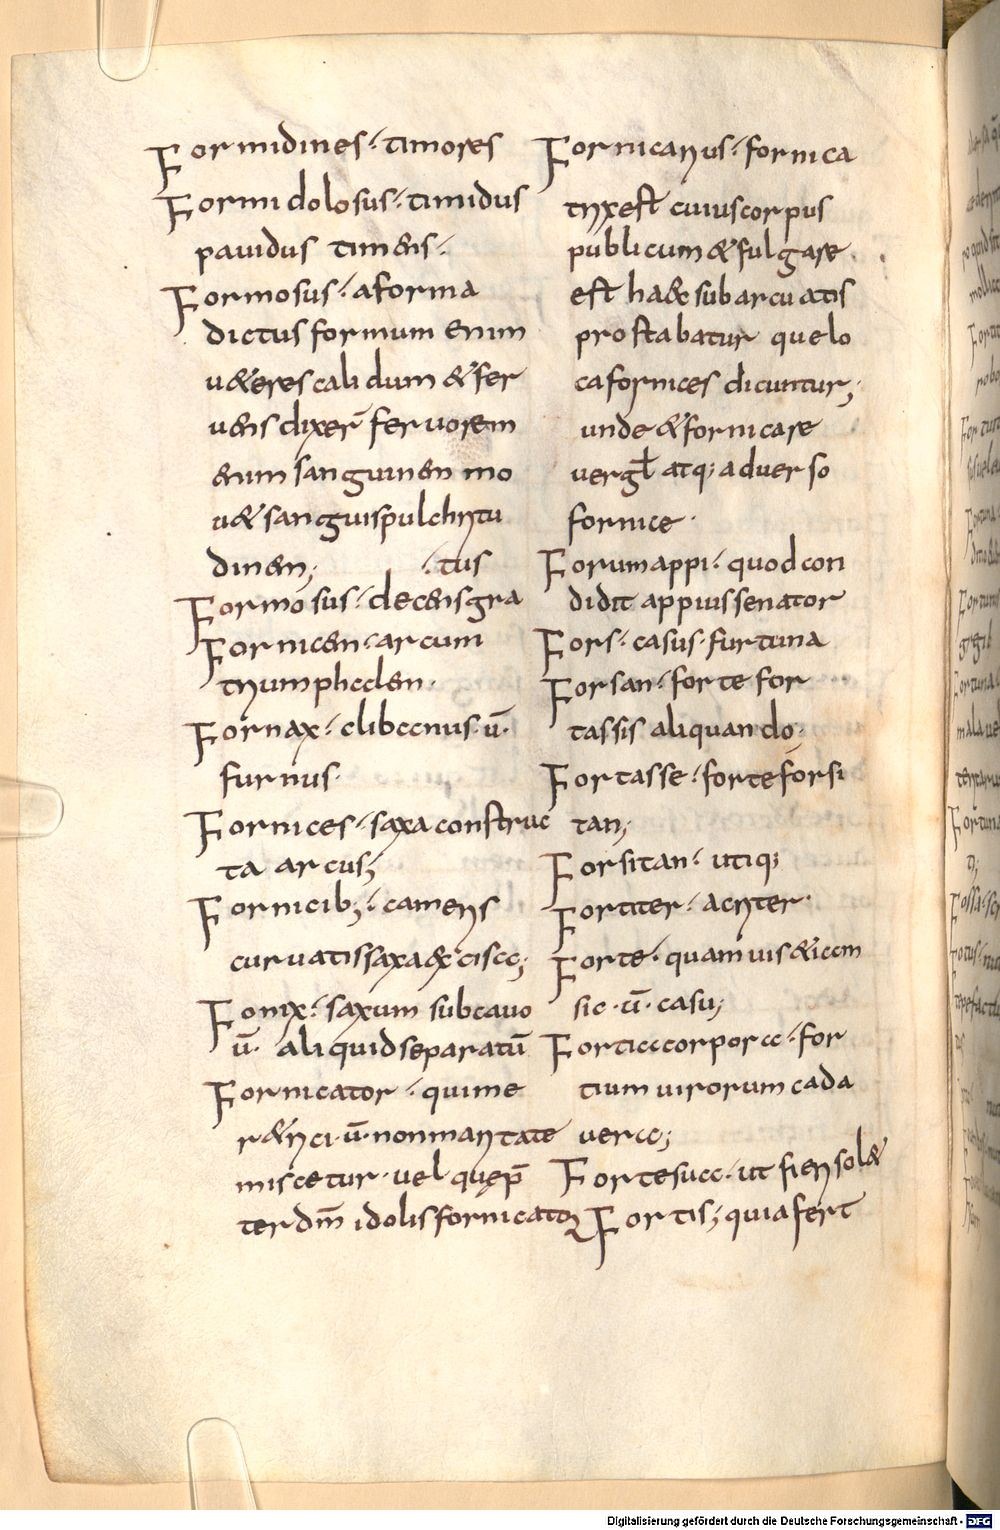 Formidines· timores
Formidolosus· timidus
pauidus timens·
Formosus· aforma
dictus formum enim
u&eres calidum & fer
uens dixer̄ feruorem
enim sanguinem mo
u& sanguis pulchritu
dinem; ·tus
Formosus· decens gra
Fornicem· arcum
triumphalem·
Fornax· clibanus· ū·
furnus·
Fornices· saxa construc
ta arcus;
Fornicib;· cameris
curuatis saxa
Fonix· saxum subcauo
ū· aliquid separatū
Fornicator· qui me
r&rici· ū· non maritate
miscetur· uel quęp̄
ter dm̄ idolis fornicator
Fornicarius· fornica
trix est cuius corpus
publicum & fulgare
est haec sub arcuatis
prostabatur que lo
ca fornices dicuntur;
unde & fornicare
vergł atq; aduerso
fornice·
Forum appi· quod con
didit appius senator
Fors· casus· furtuna
Forsan· forte for
tassis aliquando;
Fortasse· forte forsi
tan;
Forsitan· utiq;
Fortiter· acriter·
Forte· quamuis
sic· ū· casu;
Fortia corpora· for
tium uirorum cada
vera;
Forte sua· ut fieri sol&
Fortis; quia fert
Digitalisierung gefördert durch die Deutsche Forschungsgemeinschaft - DFG